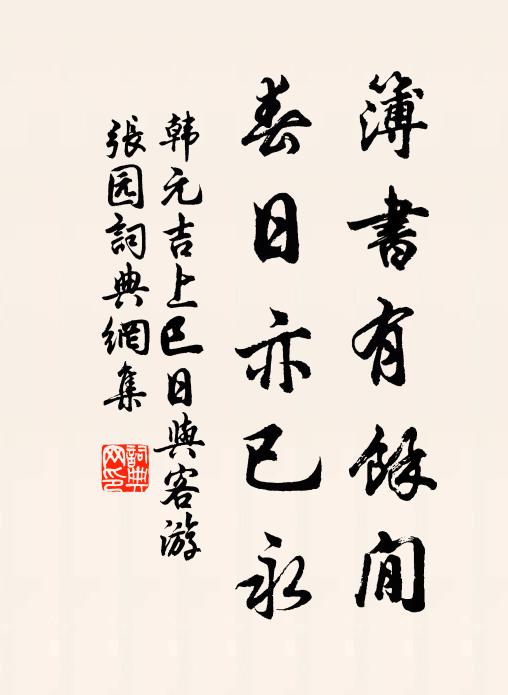 簿書有餘閒
春日亦已永
韩元吉上巳日與客游
張园詞典網集
詞典网印